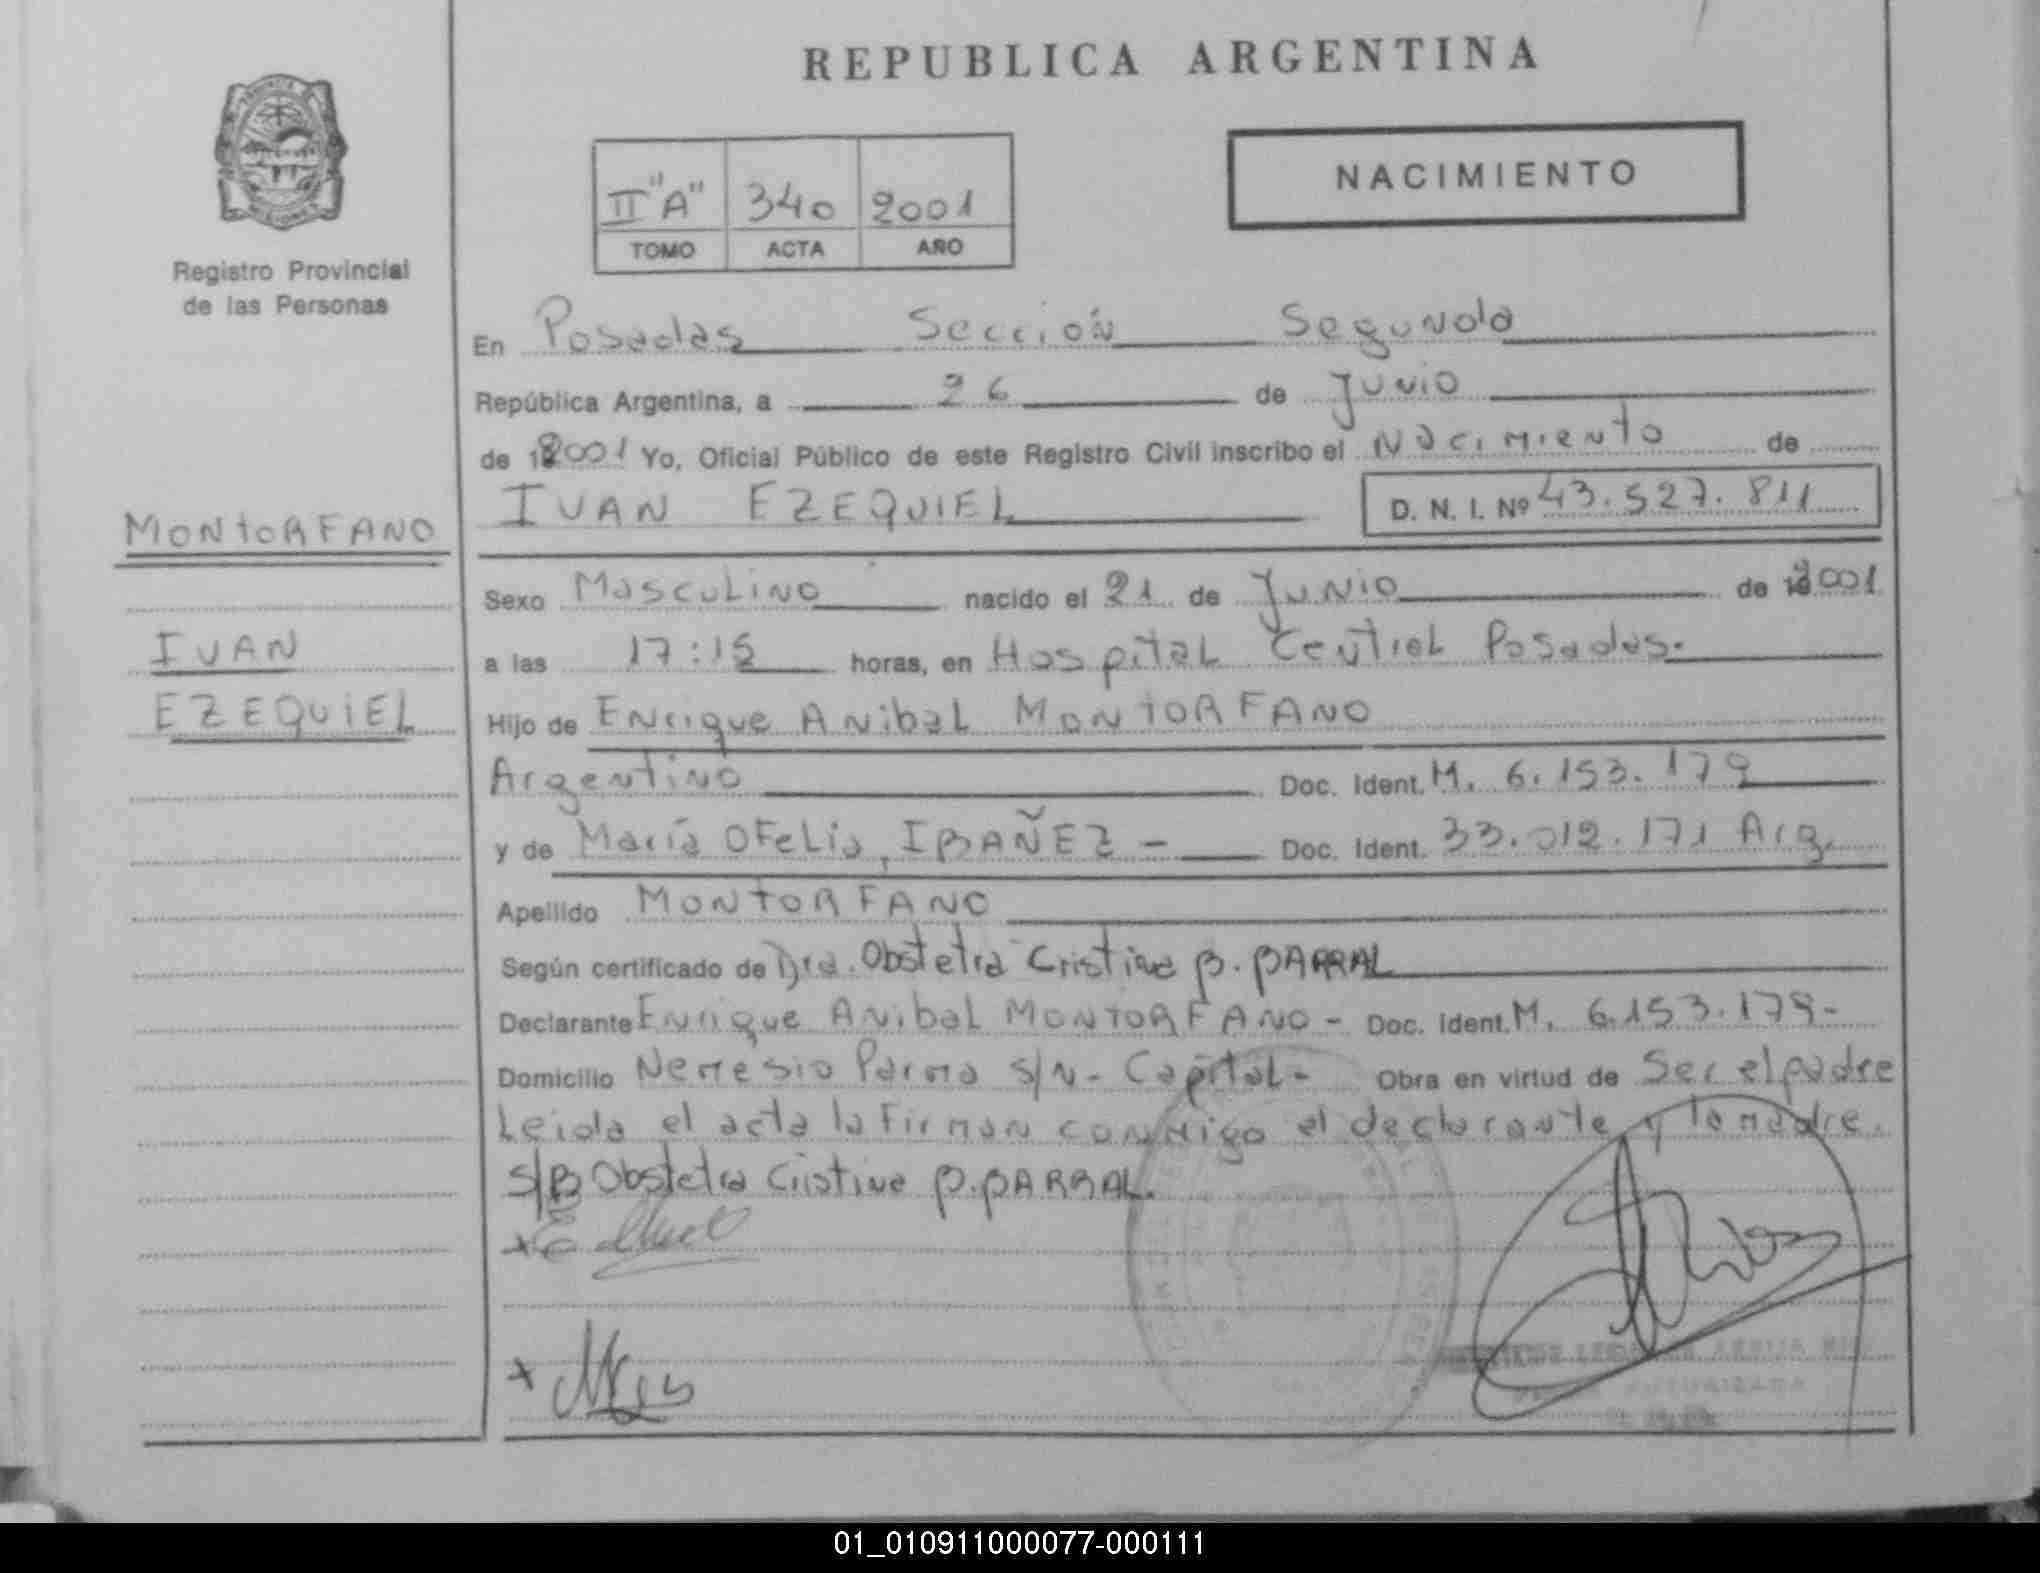 REPUBLICA ARGENTINA
NACIMIENTO
II "A" 340 2001
TOMO ACTA AÑO
Registro Provincial
de las Personas
MONTORFANO
IVAN
EZEQUIEL
En Posadas Sección Segunda
República Argentina, a 26 de Junio
de 2001 Yo, Oficial Público de este Registro Civil inscribo el Nacimiento de
IVAN EZEQUIEL D. N. I. Nº 43.527.811
Sexo Masculino nacido el 21 de Junio de 2001
a las 17:15 horas, en Hospital Central Posadas.
Hijo de Enrique Anibal MONTORFANO
Argentino Doc. Ident. M. 6.153.179
y de María Ofelia, IBAÑEZ - Doc. Ident. 33.012.171 Arg.
Apellido MONTORFANO
Según certificado de Dra. Obstetra Cristina B. BARRAL
Declarante Enrique Anibal MONTORFANO - Doc. Ident. M. 6.153.179-
Domicilio Nemesio Parma s/n - Capital - Obra en virtud de Ser el padre
Leida el acta la Firman conmigo el declarante y la madre.
S/B Obstetra Cristina B. BARRAL.
01_010911000077-000111